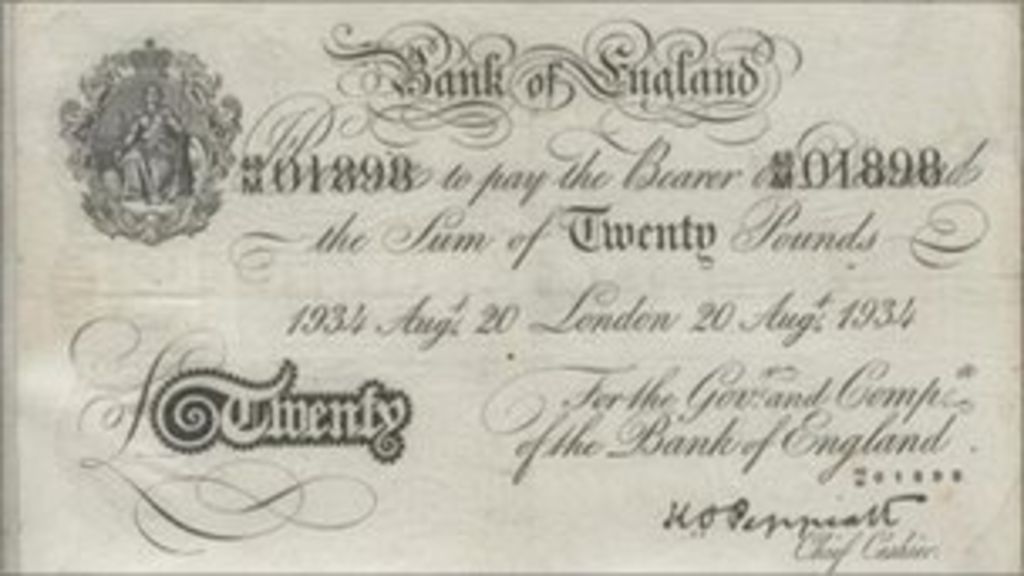 Bank of England
01898 to pay the Bearer 01898
the Sum of Twenty Pounds
1934 Augt. 20 London 20 Augt. 1934
For the Govr. and Compa.
£ Twenty
of the Bank of England.
K O Peppiatt
Chief Cashier.